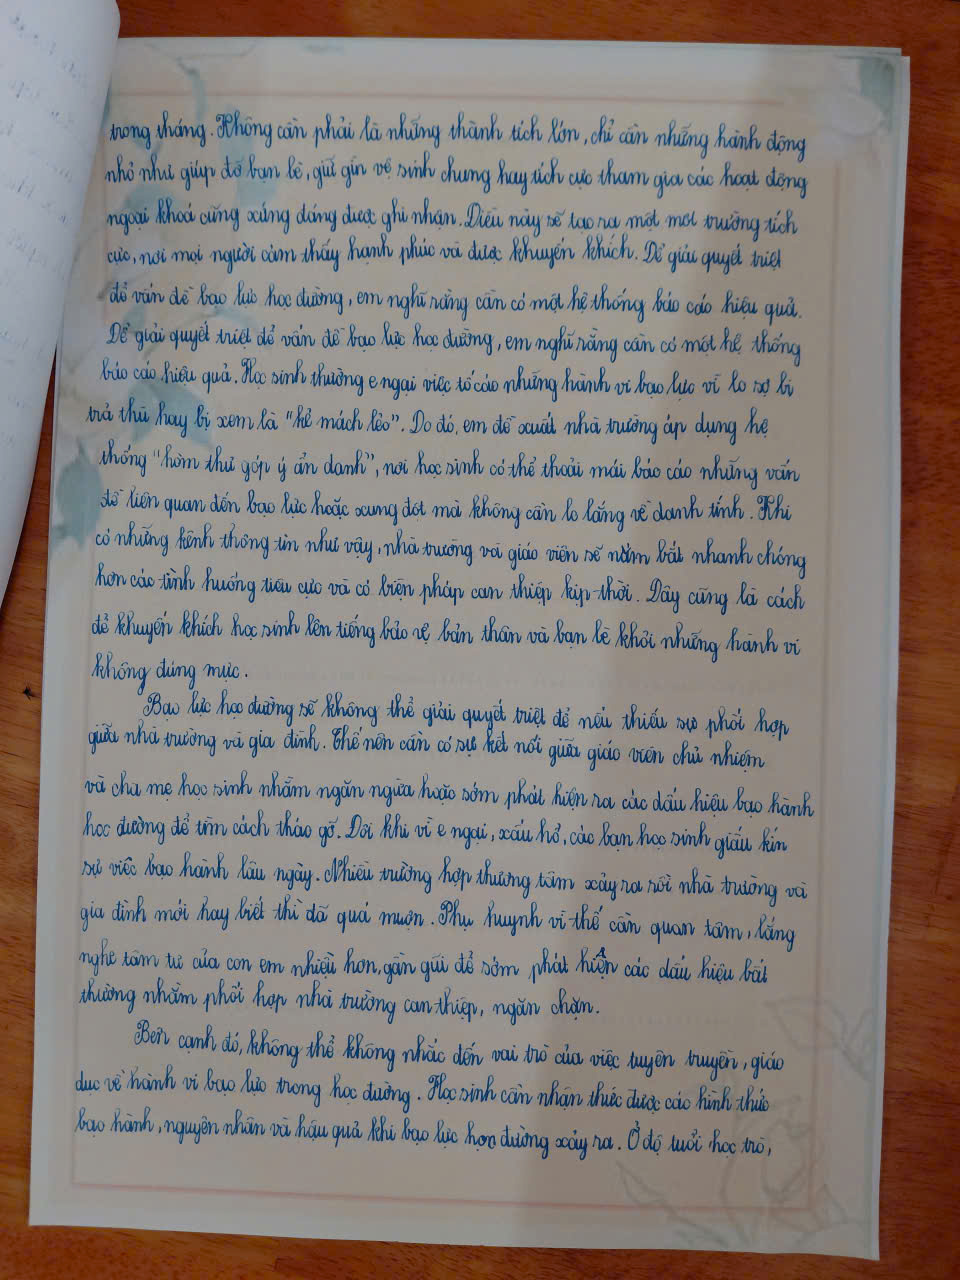 trong tháng. Không cần phải là những thành tích lớn, chỉ cần những hành động
nhỏ như giúp đỡ bạn bè, giữ gìn vệ sinh chung hay tích cực tham gia các hoạt động
ngoại khoá cũng xứng đáng được ghi nhận. Điều này sẽ tạo ra một môi trường tích
cực, nơi mọi người cảm thấy hạnh phúc và được khuyến khích. Để giải quyết triệt
để vấn đề bạo lực học đường, em nghĩ rằng cần có một hệ thống báo cáo hiệu quả.
Để giải quyết triệt để vấn đề bạo lực học đường, em nghĩ rằng cần có một hệ thống
báo cáo hiệu quả. Học sinh thường e ngại việc tố cáo những hành vi bạo lực vì lo sợ bị
trả thù hay bị xem là "kẻ mách lẻo". Do đó, em đề xuất nhà trường áp dụng hệ
thống "hòm thư góp ý ẩn danh", nơi học sinh có thể thoải mái báo cáo những vấn
đề liên quan đến bạo lực hoặc xung đột mà không cần lo lắng về danh tính. Khi
có những kênh thông tin như vậy, nhà trường và giáo viên sẽ nắm bắt nhanh chóng
hơn các tình huống tiêu cực và có biện pháp can thiệp kịp thời. Đây cũng là cách
để khuyến khích học sinh lên tiếng bảo vệ bản thân và bạn bè khỏi những hành vi
không đúng mực.
Bạo lực học đường sẽ không thể giải quyết triệt để nếu thiếu sự phối hợp
giữa nhà trường và gia đình. Thế nên cần có sự kết nối giữa giáo viên chủ nhiệm
và cha mẹ học sinh nhằm ngăn ngừa hoặc sớm phát hiện ra các dấu hiệu bạo hành
học đường để tìm cách tháo gỡ. Đôi khi vì e ngại, xấu hổ, các bạn học sinh giấu kín
sự việc bạo hành lâu ngày. Nhiều trường hợp thương tâm xảy ra rồi nhà trường và
gia đình mới hay biết thì đã quá muộn. Phụ huynh vì thế cần quan tâm, lắng
nghe tâm tư của con em nhiều hơn, gần gũi để sớm phát hiện các dấu hiệu bất
thường nhằm phối hợp nhà trường can thiệp, ngăn chặn.
Bên cạnh đó, không thể không nhắc đến vai trò của việc tuyên truyền, giáo
dục về hành vi bạo lực trong học đường. Học sinh cần nhận thức được các hình thức
bạo hành, nguyên nhân và hậu quả khi bạo lực học đường xảy ra. Ở độ tuổi học trò,